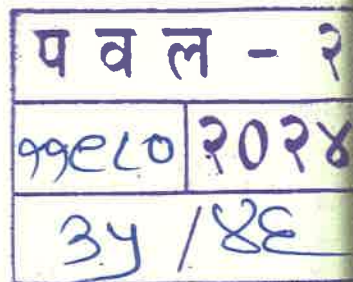 पवल - २
११९८० २०२४
३५ / ४६